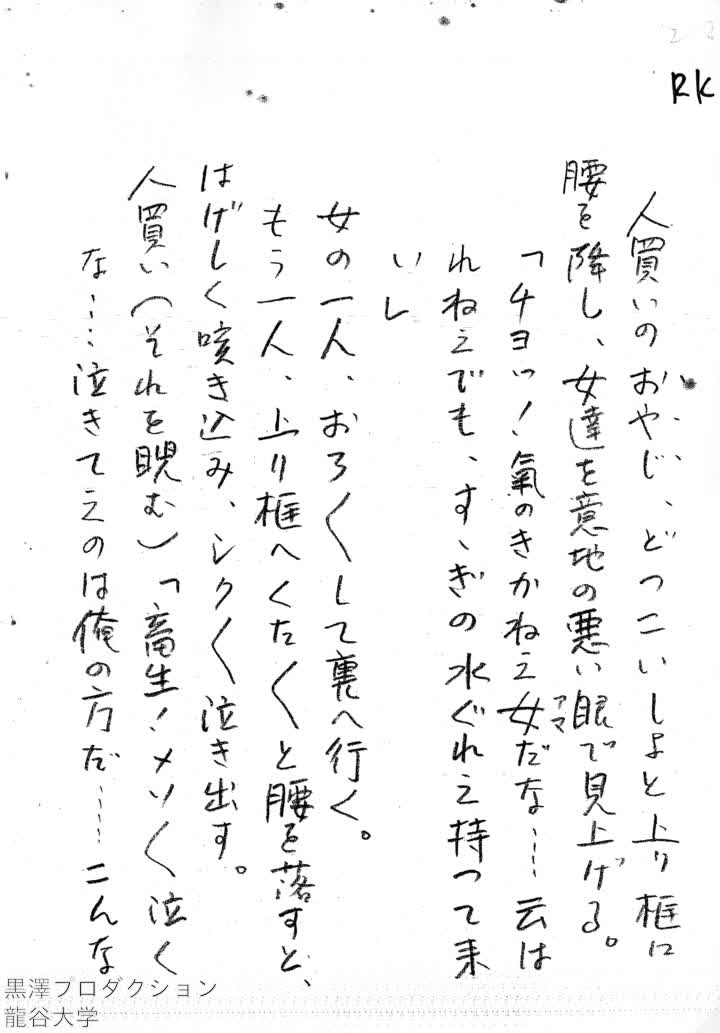 RK
人買いのおやじ、どつこいしよと上り框に
腰を降し、女達を意地の悪い眼で見上げる。
「チヨッ！氣のきかねえ女だな……云は
アマ
れねえでも、すゝぎの水ぐれえ持つて来
い」
女の一人、おろ〱して裏へ行く。
もう一人、上り框へくた〱と腰を落すと、
はげしく咳き込み、シク〱泣き出す。
人買い（それを睨む）「畜生！メソ〱泣く
な……泣きてえのは俺の方だ……こんな
黒澤プロダクション
龍谷大学